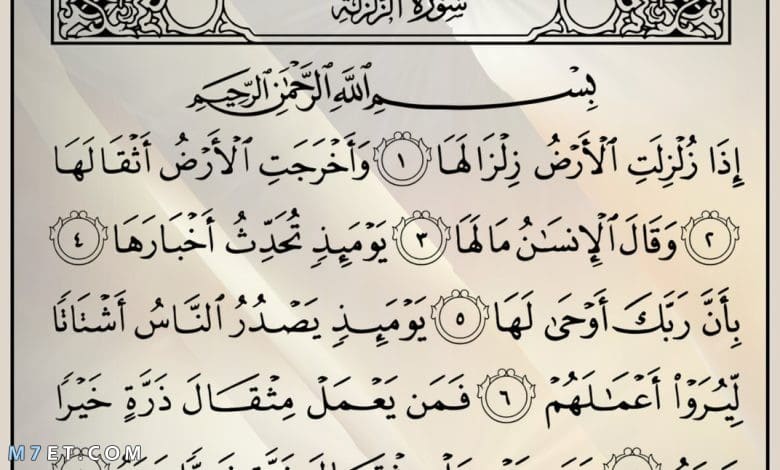 سُورَةُ الزَّلْزَلَةِ
بِسْمِ ٱللَّهِ ٱلرَّحْمَٰنِ ٱلرَّحِيمِ
إِذَا زُلْزِلَتِ ٱلْأَرْضُ زِلْزَالَهَا ١ وَأَخْرَجَتِ ٱلْأَرْضُ أَثْقَالَهَا
٢ وَقَالَ ٱلْإِنسَٰنُ مَا لَهَا ٣ يَوْمَئِذٍ تُحَدِّثُ أَخْبَارَهَا ٤
بِأَنَّ رَبَّكَ أَوْحَىٰ لَهَا ٥ يَوْمَئِذٍ يَصْدُرُ ٱلنَّاسُ أَشْتَاتًا
لِّيُرَوْا۟ أَعْمَٰلَهُمْ ٦ فَمَن يَعْمَلْ مِثْقَالَ ذَرَّةٍ خَيْرًا
M7ET.COM